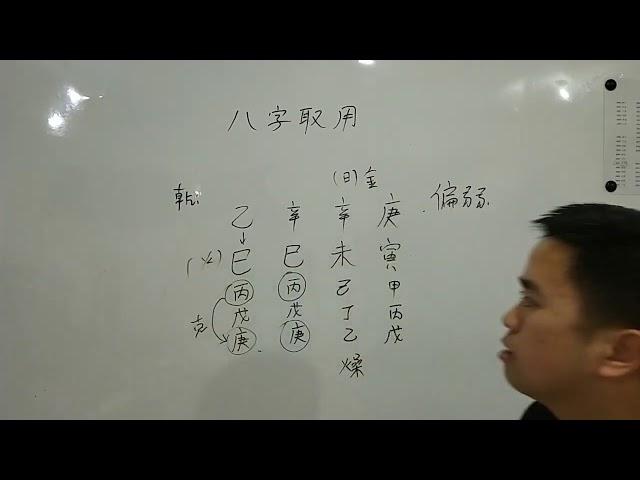 八字取用
(日)金
乾: 乙 辛 辛 庚 偏弱
↓
(火) 巳 巳 未 寅
丙 丙 己 甲
克 戊 戊 丁 丙
庚 庚 乙 戊
燥